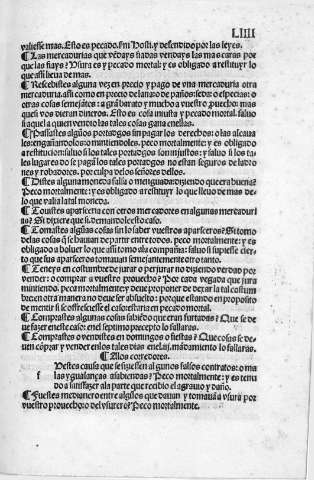 LIIII
valiesse mas. Esto es pecado. sm Hosti. y defendido por las leyes.
¶ Las mercadurias que vēdays fiadas vendays las mas caras por
que las fiays? Usura es y pecado mortal: y es obligado a restituyr lo
que assi lieua de mas.
¶ Recebistes alguna vez en precio y pago de vna mercaduria otra
mercaduria. assi como en precio de lanas de paños: seda: o especias: o
otras cosas semejātes: a grā barato y mucho a vuestro puecho: mas
que si vos dieran dineros. Esto es cosa iniusta y pecado mortal. saluo
si aquel a quien vendeo las tales cosas gana enellas.
¶ Passastes algūos portadgos sin pagar los derechos: o las alcaua
las: engañandolos o mintiendoles. peco mortalmente: y es obligado
a restitucion saluo si los tales portadgos son injustos: y saluo si los ta
les lugares do se pagā los tales portadgos no estan seguros de ladro
nes y robadores. por culpa delos señores dellos.
¶ Distes alguna moneda falsa o menguada: diziendo que era buena?
Peco mortalmente: y es obligado a restituyr lo que lleuo de mas de-
lo que valia la tal moneda.
¶ Touistes aparsceria con otros mercaderes en algunas mercaduri
as? Si dixere que si. demandole esto caso.
¶ Tomastes algūas cosas sin lo saber vuestros aparsceros? Si tomo
delas cosas q̄ se hauian de partir entre todos. peco mortalmente: y es
obligado a boluer lo que assi tomo ala compañia: saluo si supiesse cier
to que sus aparsceros tomauan semejantemente otro tanto.
¶ Teneys en costumbre de jurar o perjurar no diziendo verdad por
vender: o comprar a vuestro prouecho? Por cada vegada que jura
mintiendo. peca mortalmente: y deue proponer de dexar la tal costum
bre: en otra manera no deue ser absuelto: por que estando en proposito
de mentir si se offresciesse el caso estaria en pecado mortal.
¶ Comprastes algunas cosas sabiēdo que eran furtadas? Que se de
ue fazer eneste caso: enel septimo precepto lo fallaras.
¶ Comprastes o vendistes en domingos o fiestas? Que cosas se de-
uen cōprar y vender enlos tales dias enel.iij. mādamiento lo fallaras.
¶ Alos corredores.
f Hezistes causa que se fiziessen algunos falsos contratos: o ma
las ygualanças a sabiendas? Peco mortalmente: y es tenu
do a satisfazer ala parte que recibio el agrauio y daño.
¶ Fuestes medianero entre algūos que dauan y tomauā a vsura por
vuestro prouecho: o del vsurero? Peco mortalmente.